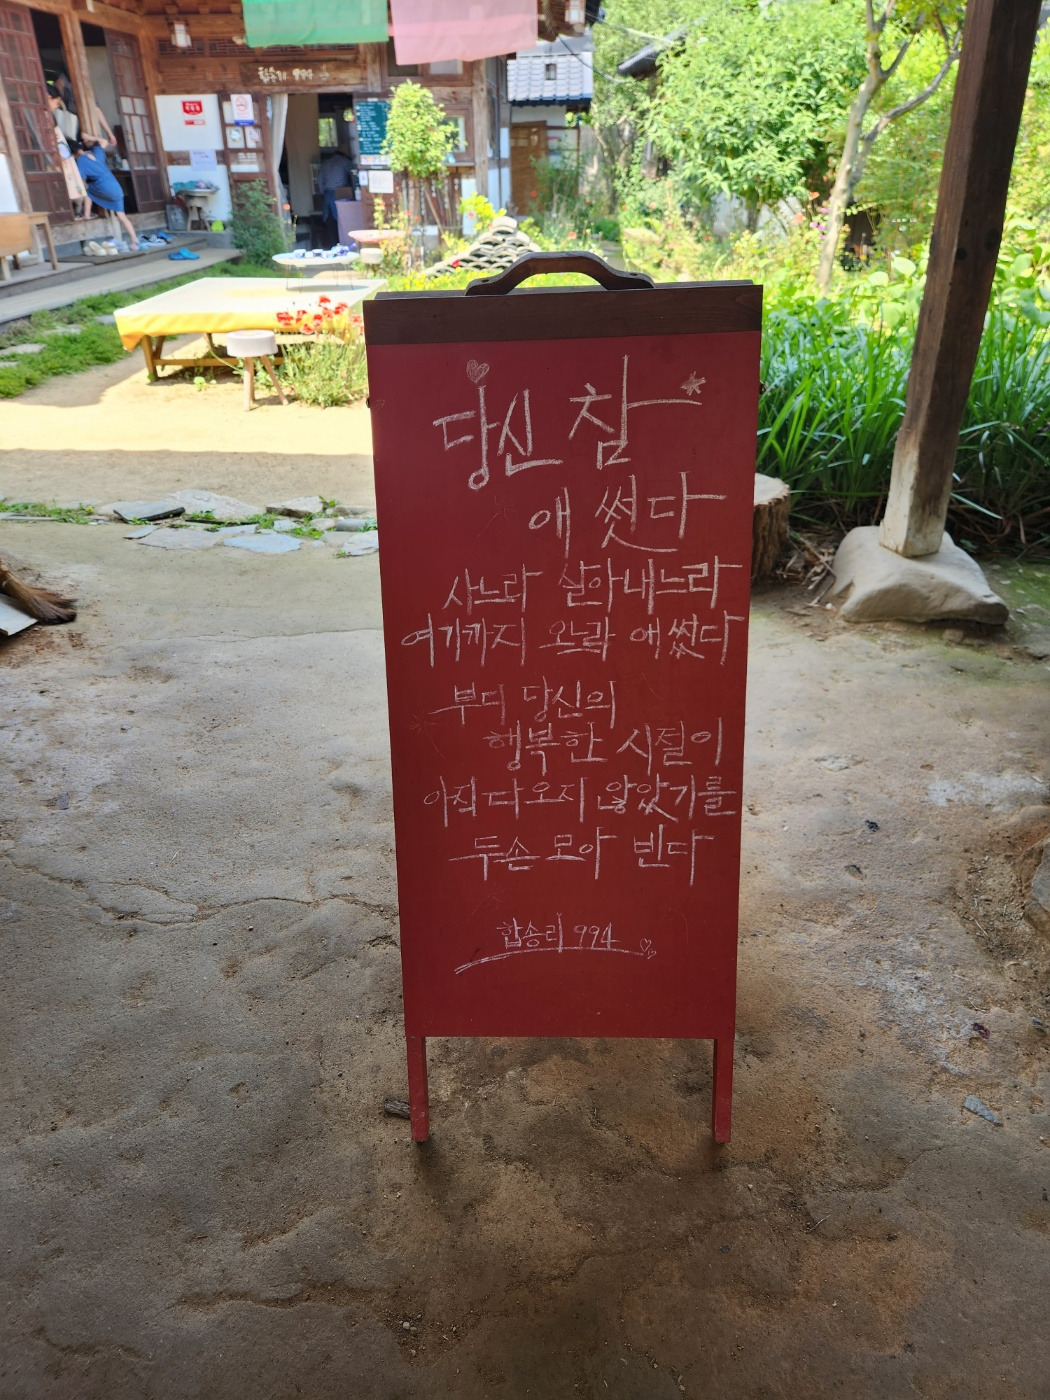 합송리 994
당신 참
애 썼다
사느라 살아내느라
여기까지 오느라 애썼다
부디 당신의
행복한 시절이
아직 다 오지 않았기를
두손 모아 빈다
합송리 994